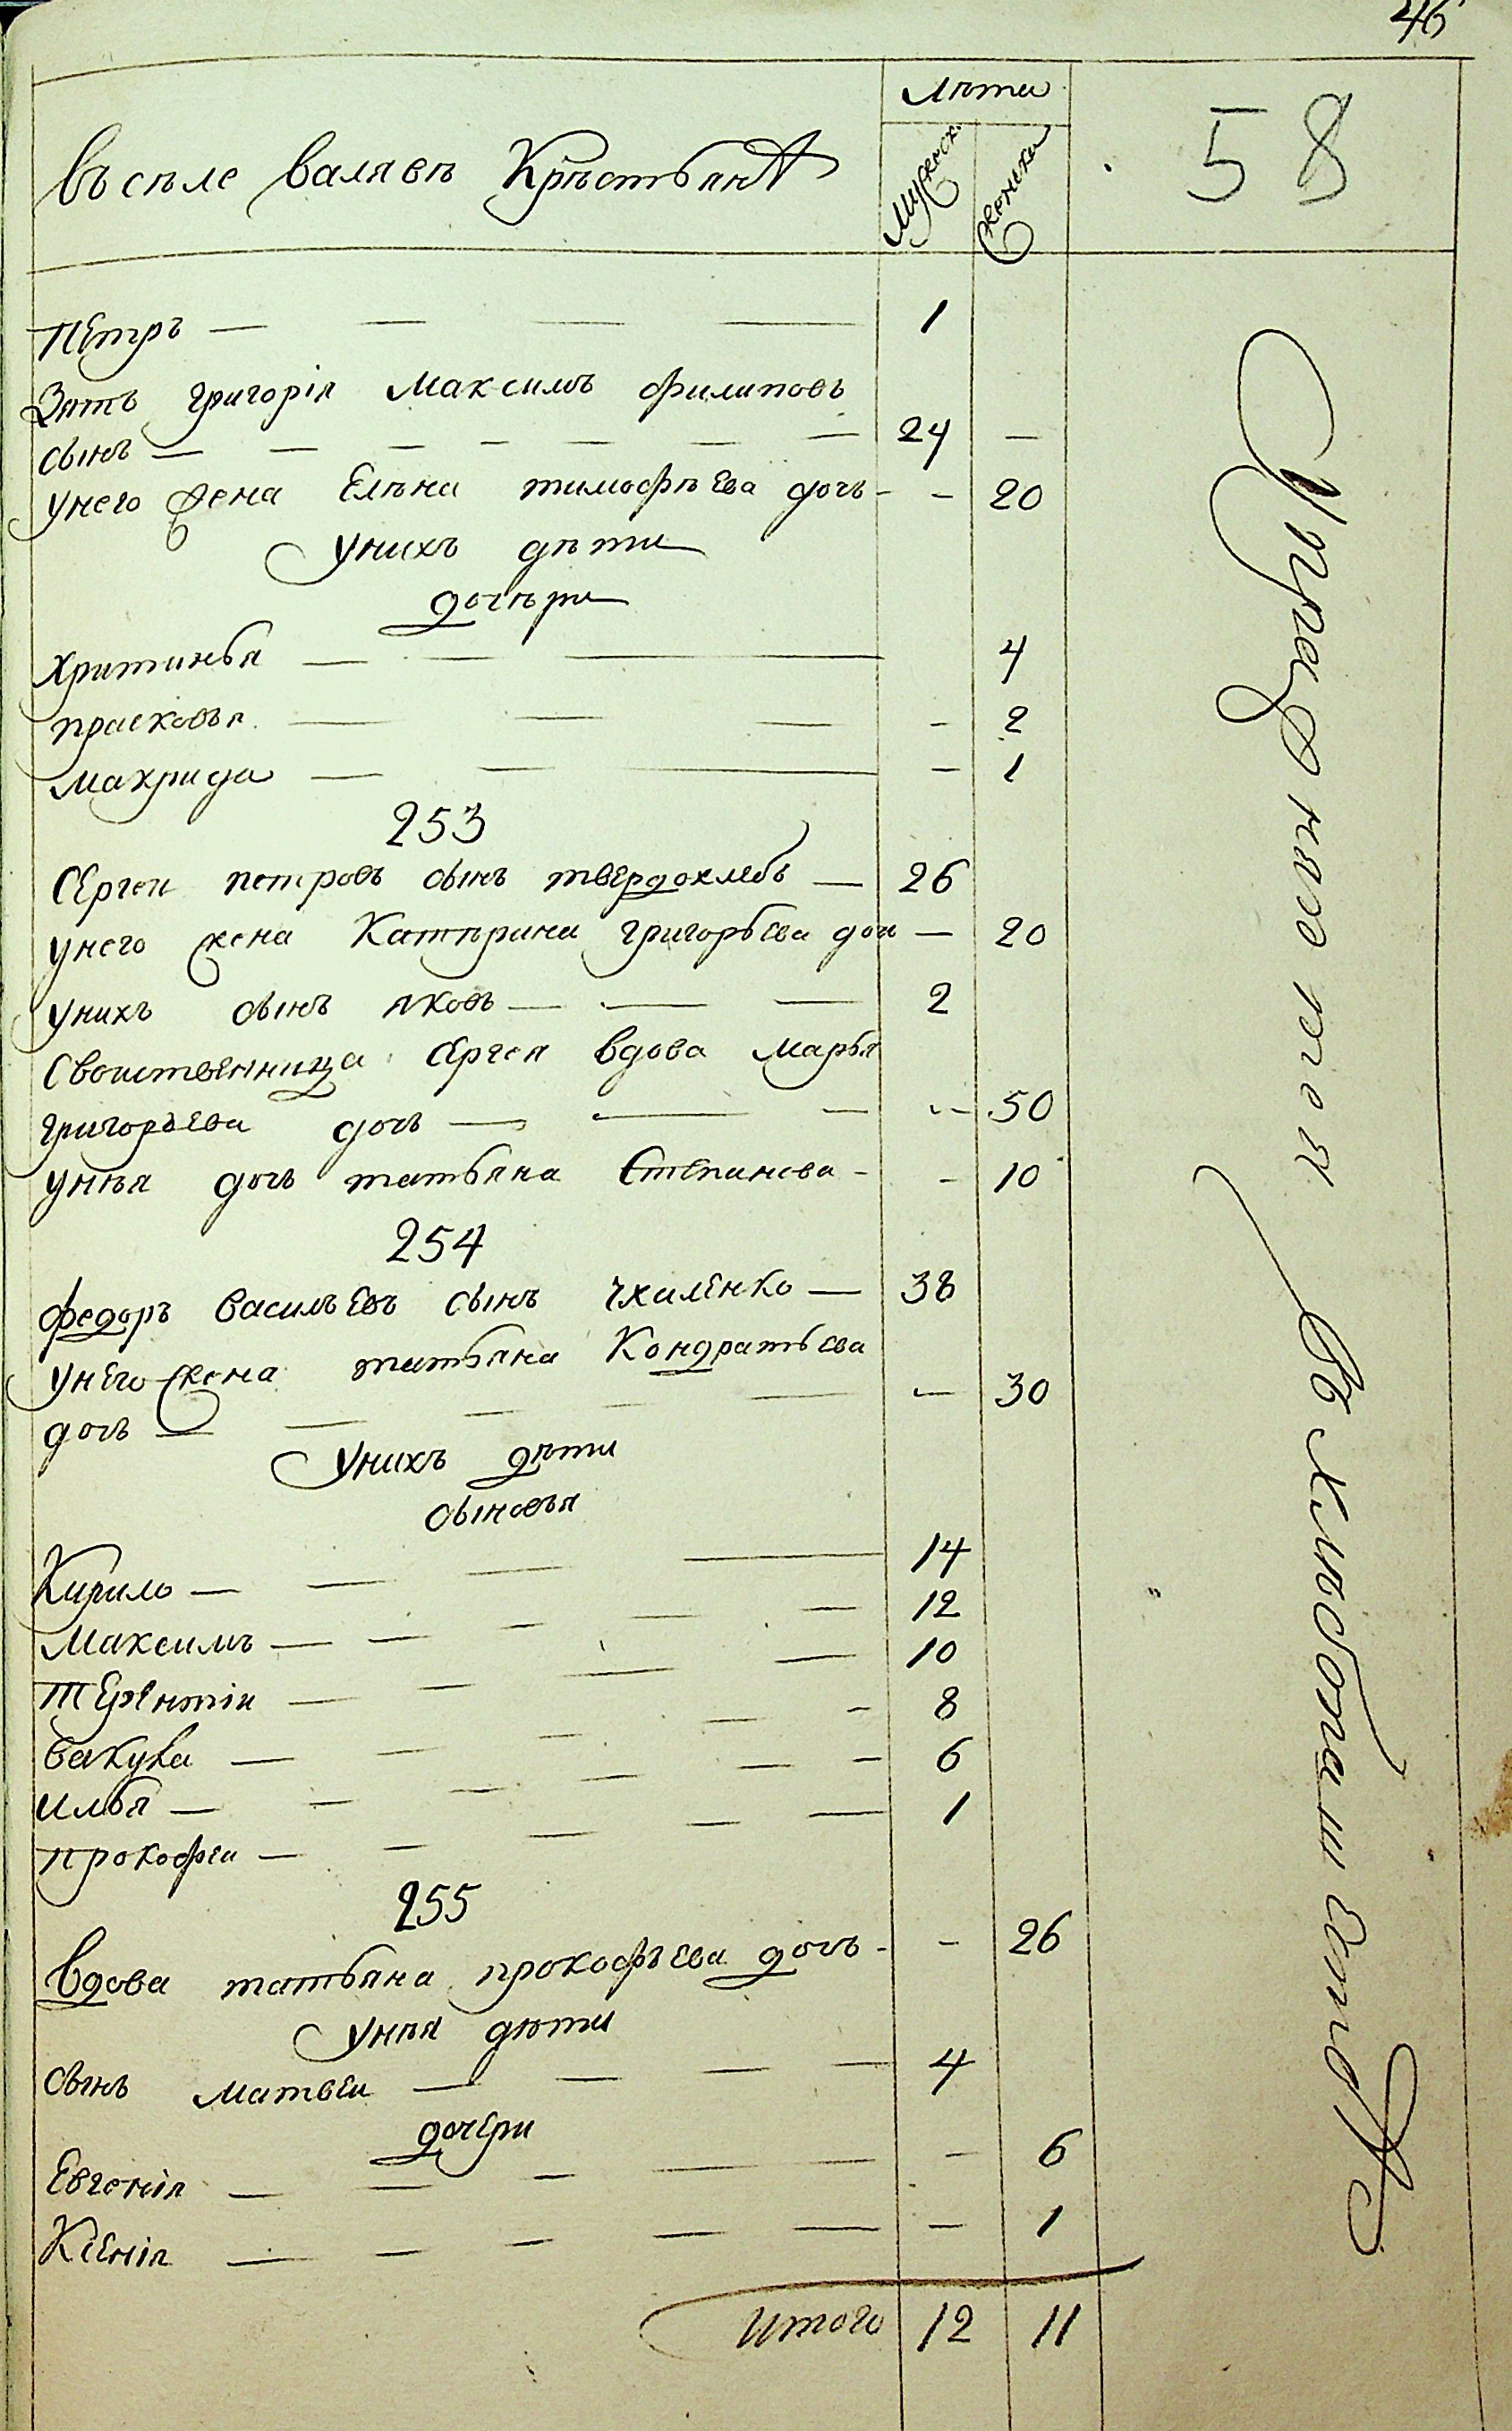 46
58
въ сѣле валявѣ Крѣстьян
лѣти
Мужеск.
женски
пЕтръ — — — — 1
Зять григорія максимъ филиповъ
сынъ — — — — — — — 24 —
унего жена Елѣна тимофѣЕва дочь - - 20
унихъ дѣти
дочѣри
христинья — - — 4
прасковья — — — - 2
махрида — — — - 1
253
СЕргеи петровъ сынъ твЕрдохлебъ — 26
унего жена Катѣрина григорьЕва доч — 20
унихъ сынъ яковъ — — — 2
СвоиствЕнница СЕргея вдова марья
григорьЕва дочь — — — -- 50
унѣя дочь татьяна СтЕпанова - - 10
254
федоръ василъЕвъ сынъ чхилЕнко — 38
унЕго жена татьяна КондратьЕва
дочь — — — - — — 30
унихъ дѣти
сыновъя
Кирило — — — — 14
Максимъ — — - — — 12
ТЕрЕнтіи — — — — 10
вакула — — — — - 8
илья — — — — — - 6
прокофеи — — — — — 1
255
Вдова татьяна прокофъЕва дочь - - 26
унѣя дѣти
сынъ матвЕи — — — — 4
дочЕри
Евгенія — — — — - 6
КсЕнія — — — — — - 1
итого 12 11
въ